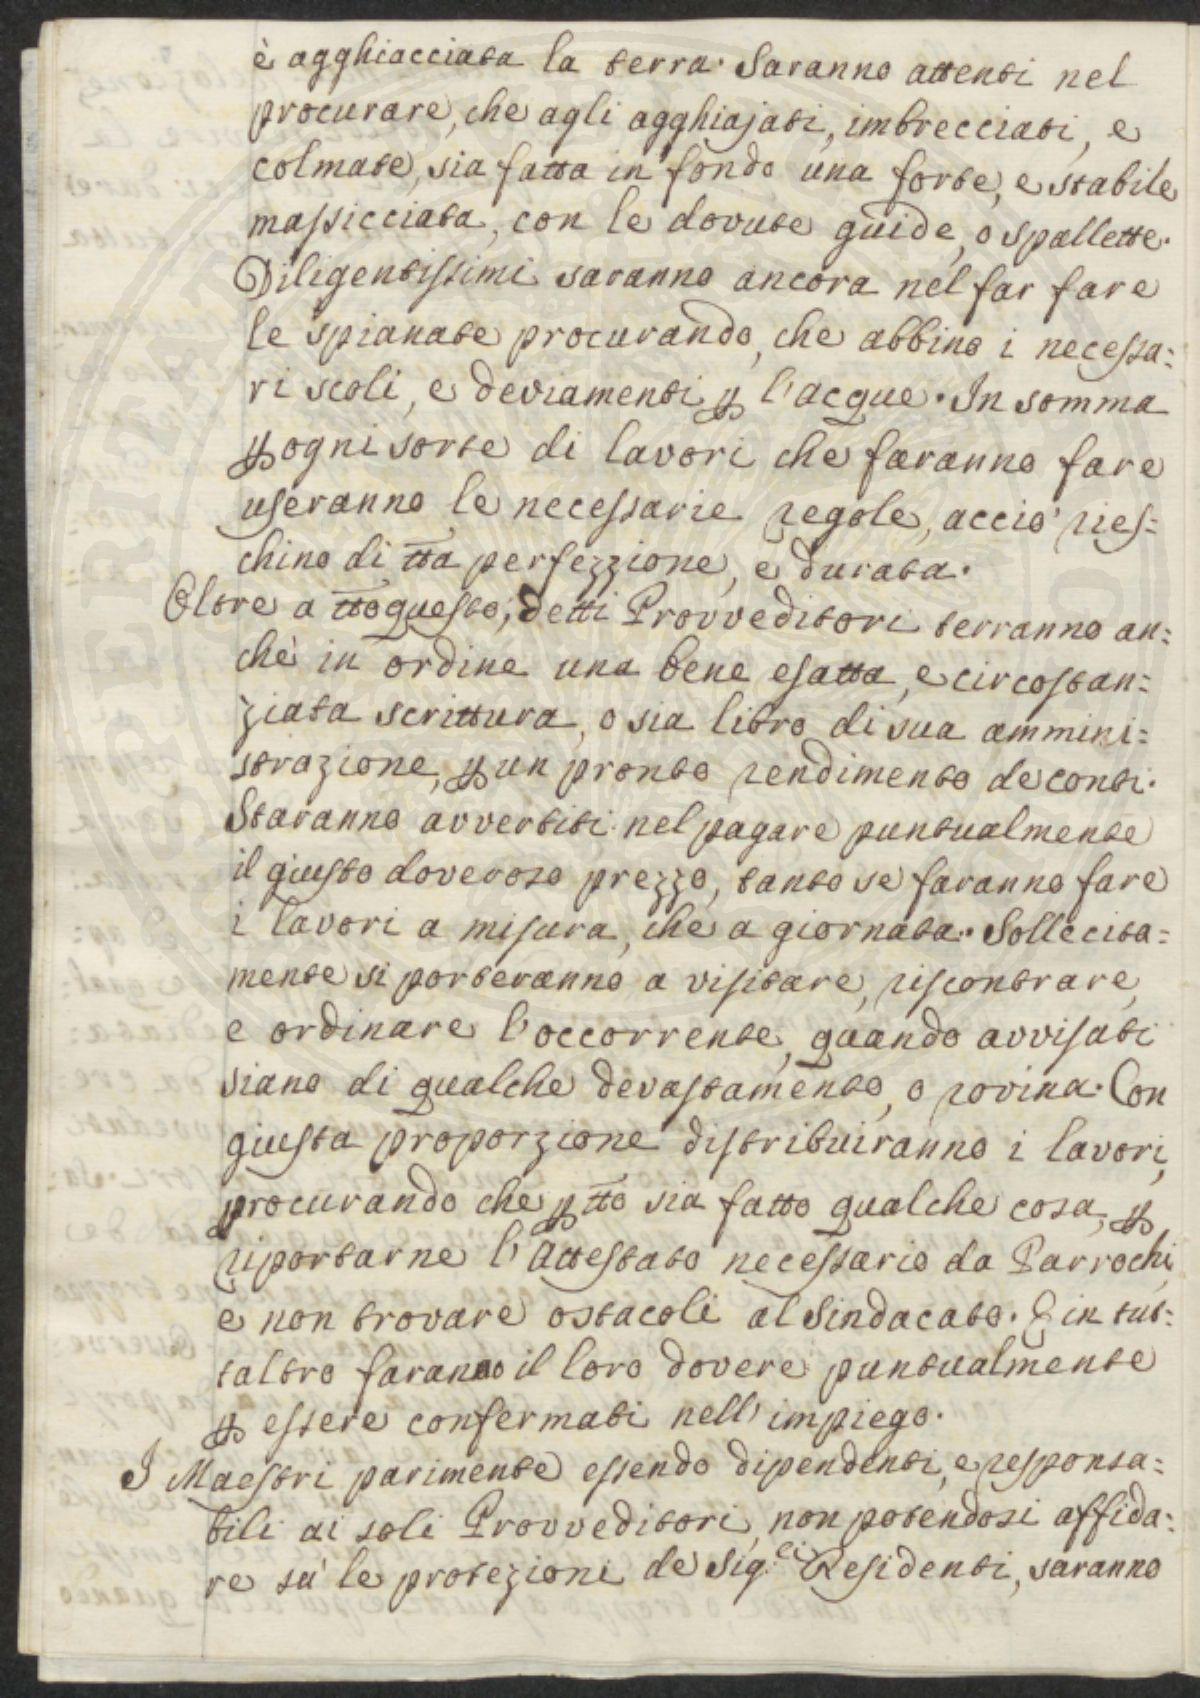 è agghiacciata la terra. Saranno attenti nel
procurare, che agli agghiajati, imbrecciati, e
colmate, sia fatta in fondo una forte, e stabile
massicciata, con le dovute guide, o spallette.
Diligentissimi saranno ancora nel far fare
le spianate procurando, che abbino i necessa:
ri scoli, e deviamenti ꝑ l'acque. In somma
ꝑ ogni sorte di lavori che faranno fare
useranno le necessarie regole, acciò ries:
chino di tt̅a perfezzione, e durata.
Oltre a tt̅o questo, detti Provveditori terranno an:
che in ordine una bene esatta, e circostan:
ziata scrittura, o sia libro di sua ammini:
strazione, ꝑ un pronto rendimento de conti.
Staranno avvertiti nel pagare puntualmente
il giusto doveroso prezzo, tanto se faranno fare
i lavori a misura, che a giornata. Sollecita:
mente si porteranno a visitare, riscontrare,
e ordinare l'occorrente, quando avvisati
siano di qualche devastamento, o rovina. Con
giusta proporzione distribuiranno i lavori,
procurando che ꝑ tt̅o sia fatto qualche cosa, ꝑ
riportarne l'Attestato necessario da Parrochi,
e non trovare ostacoli al Sindacato. E in tut:
t'altro faranno il loro dovere puntualmente
ꝑ essere confermati nell'impiego.
I Maestri parimente essendo dipendenti, e responsa:
bili ai soli Provveditori, non potendosi affida:
re sù le protezioni de Sig.ri Residenti, saranno